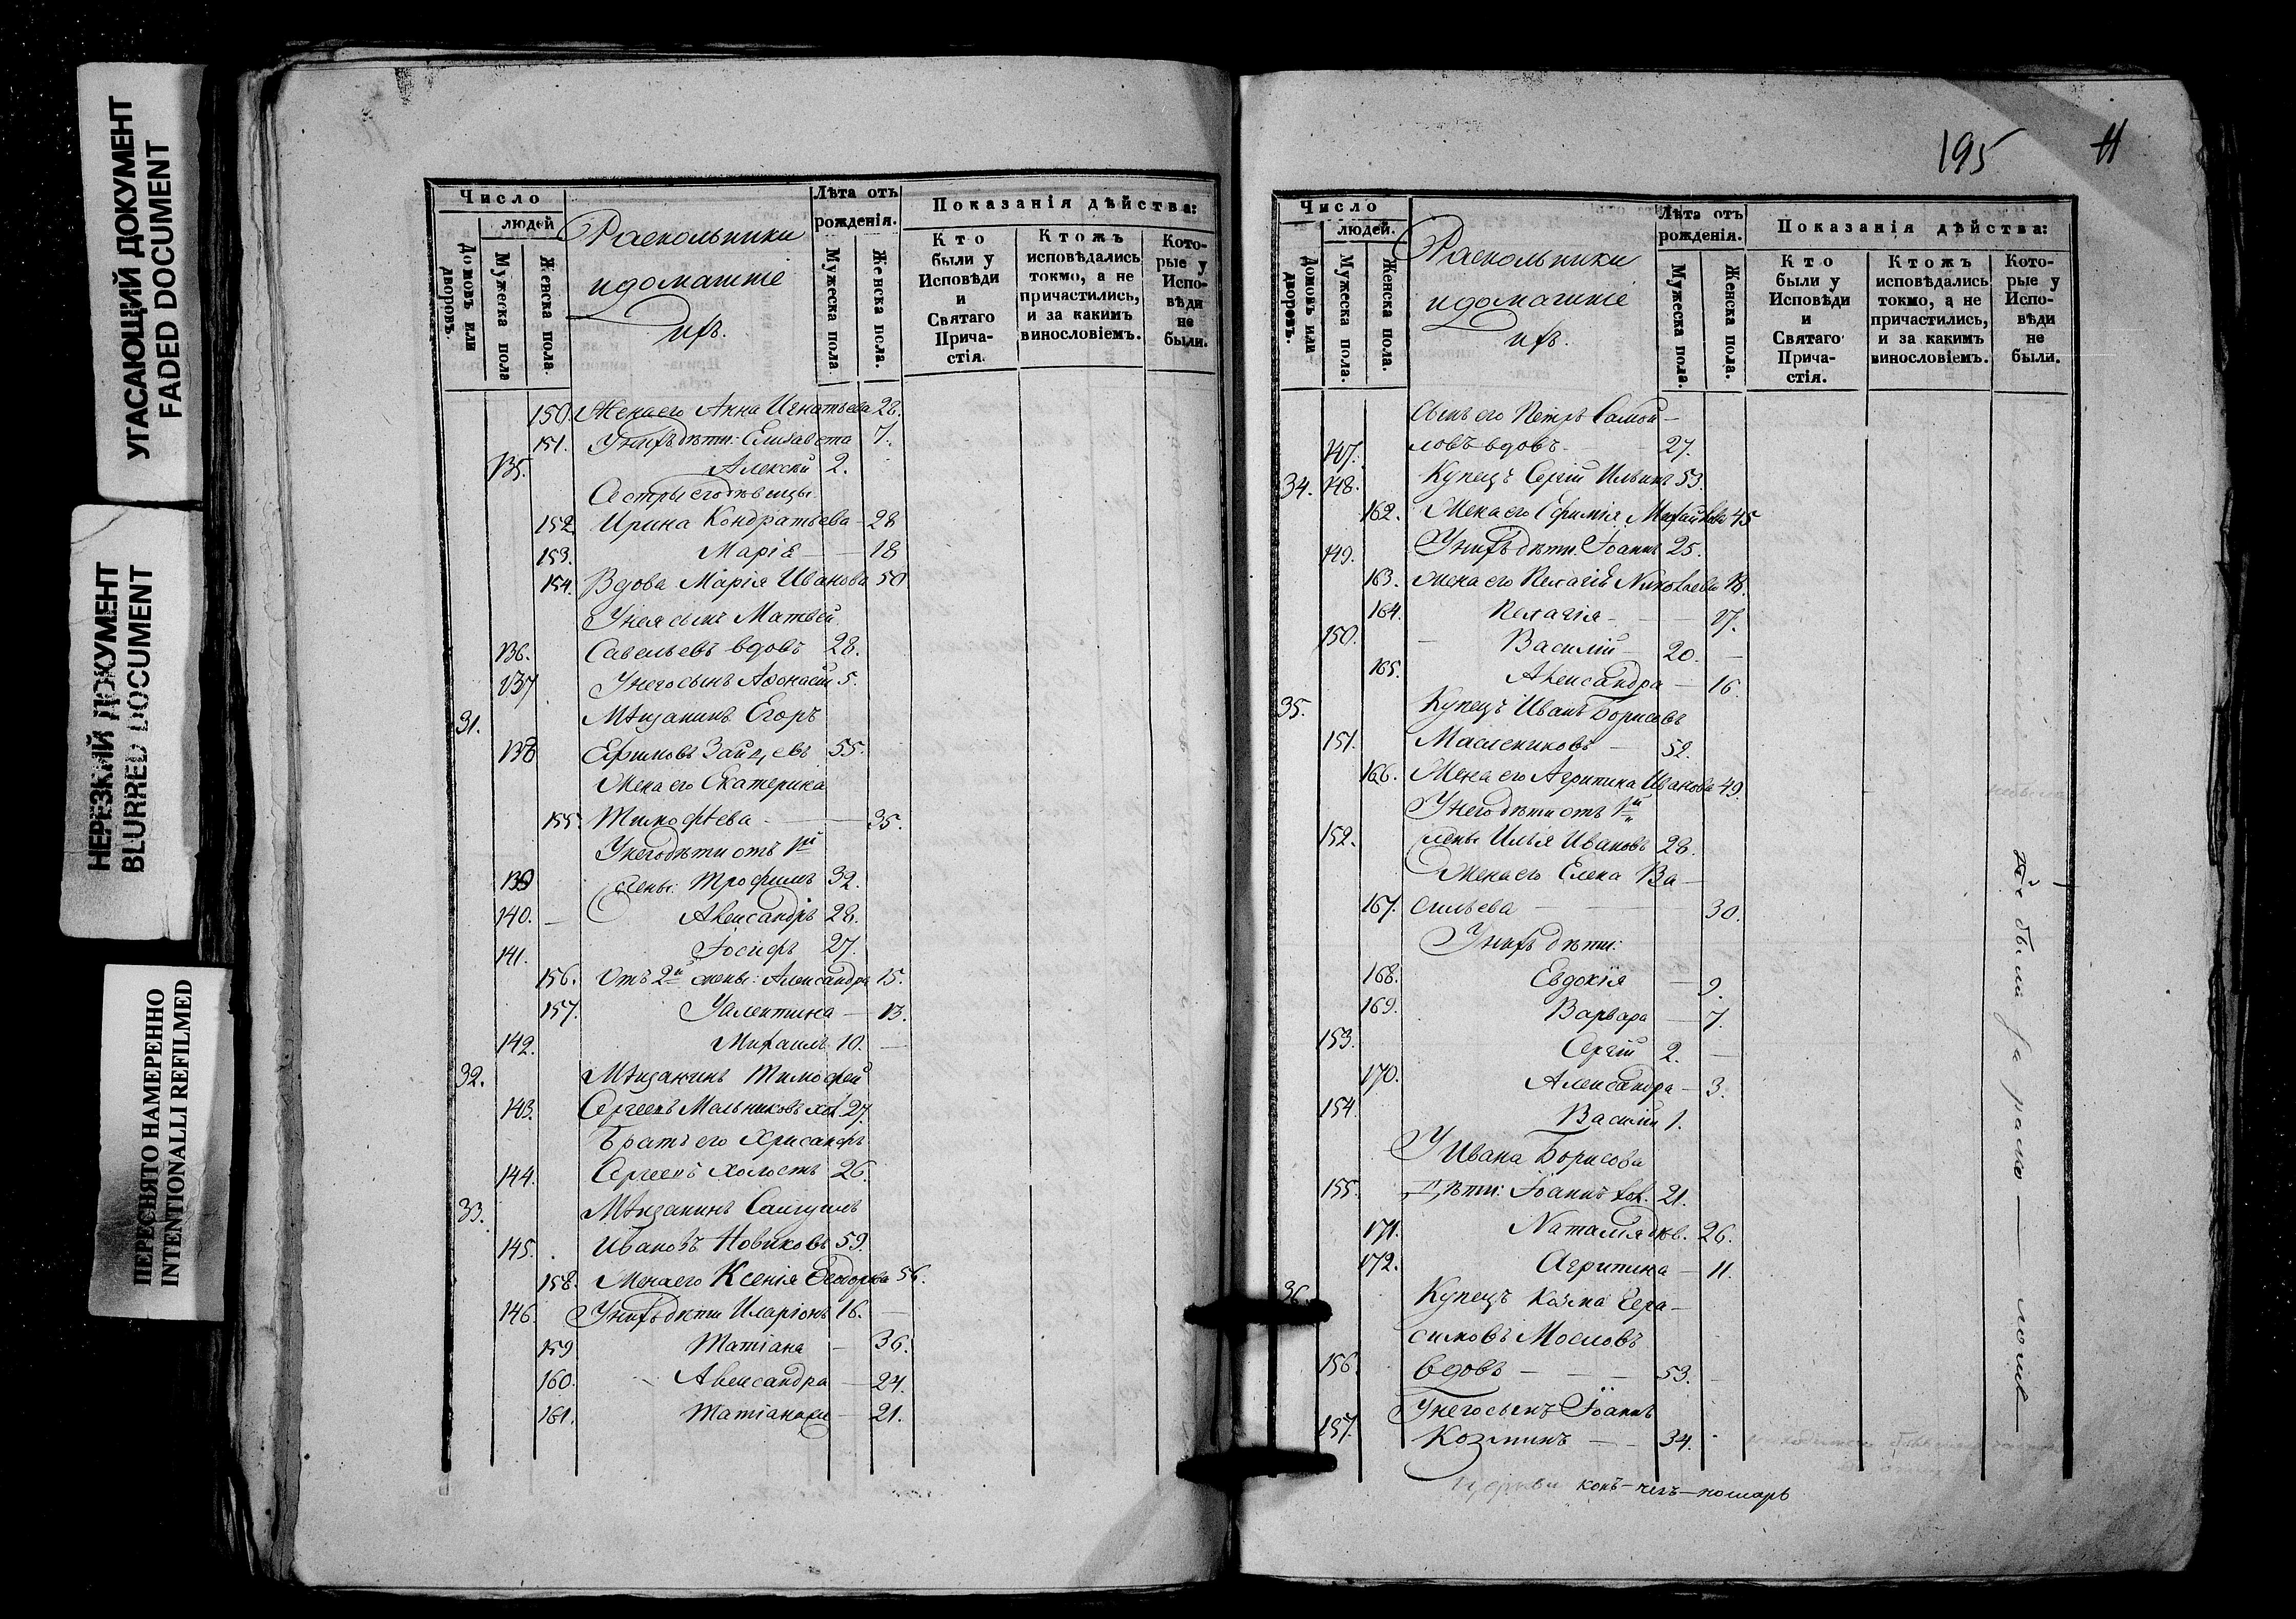 УГАСАЮЩИЙ ДОКУМЕНТ
FADED DOCUMENT
НЕРЕЗКИЙ ДОКУМЕНТ
BLURRED DOCUMENT
ПЕРЕСНЯТО НАМЕРЕННО
INTENTIONALLI REFILMED
Число
людей
Домовъ или дворовъ.
Мужеска пола
Женска пола.
Раскольники
и домашніе
ихъ.
Лѣта отъ рожденія.
Мужеска пола
Женска пола.
Показанія дѣйства:
Кто были у Исповѣди и Святаго Прича-стія.
Ктожъ исповѣдались токмо, а не причастились, и за какимъ винословіемъ.
Кото-рые у Испо-вѣди не были.
150. Жена его Анна Игнатьева 28.
151. У нихъ дѣти: Елисавета 7.
135. Алексѣй 2.
Сестры его дѣвицы
152 Ирина Кондратьева - 28
153. Марія - 18
154. Вдова Марія Иванова 50
У нея сынъ Матвей
136. Савельевъ вдовъ 28.
137 У него сынъ Афонасій 5.
31. Мѣщанинъ Егоръ
138 Ефимовъ Зайцевъ 55.
Жена его Екатерина
155. Тимофѣева - 35.
У него дѣти отъ 1й
139 жены: Трофимъ 32.
140. Александръ 28.
141. Іосифъ 27.
156. Отъ 2й жены: Александра 15.
157. Уалентина - 13.
142. Михаилъ 10.
32. Мѣщанинъ Тимофей
143. Сергеевъ Мельниковъ хол 27.
Братъ его Хрисанфъ
144. Сергеевъ холостъ 26.
33. Мѣщанинъ Самуилъ
145. Ивановъ Новиковъ 59.
158. Жена его Ксенія Феодорова 56.
146. У нихъ дѣти Иларіонъ 16.
159 Татіана - 36.
160. Александра - 24.
161. Татіана - 21.
195
11
Число
людей.
Домовъ или дворовъ.
Мужеска пола.
Женска пола.
Раскольники
и домашніе
ихъ.
Лѣта отъ рожденія.
Мужеска пола.
Женска пола.
Показанія дѣйства:
Кто были у Исповѣди и Святаго Прича-стія.
Ктожъ исповѣдались токмо, а не причастились, и за какимъ винословіемъ.
Кото-рые у Испо-вѣди не были.
Сынъ его Петръ Самой-
147. ловъ вдовъ 27.
34. 148. Купецъ Сергій Ильинъ 53.
162. Жена его Ефимія Михайлова 45
149. У нихъ дѣти: Іоаннъ 25.
163. жена его Пелагія Николаева 18.
164. Пелагія - 17.
150. Василій 20.
165. Александра - 16.
35. Купецъ Иванъ Борисовъ
151. Маслениковъ - 52.
166. Жена его Агрипина Иванова 49.
У него дѣти отъ 1й
152. жены Илья Ивановъ 28.
Жена его Елена Ва-
167. сильева - 30.
У нихъ дѣти:
168. Евдокія - 9.
169. Варвара - 7.
153. Сергій 2.
170. Александра - 3.
154. Василій 1.
У Ивана Борисова
155. Дѣти: Іоаннъ хол. 21.
171. Наталія дѣв. 26.
172. Агрипина - 11.
36. Купецъ Козма Гера-
симовъ Мословъ
156. вдовъ - 53.
У него сынъ Іоаннъ
157. Козминъ - 34.
Не были за раско - ломъ